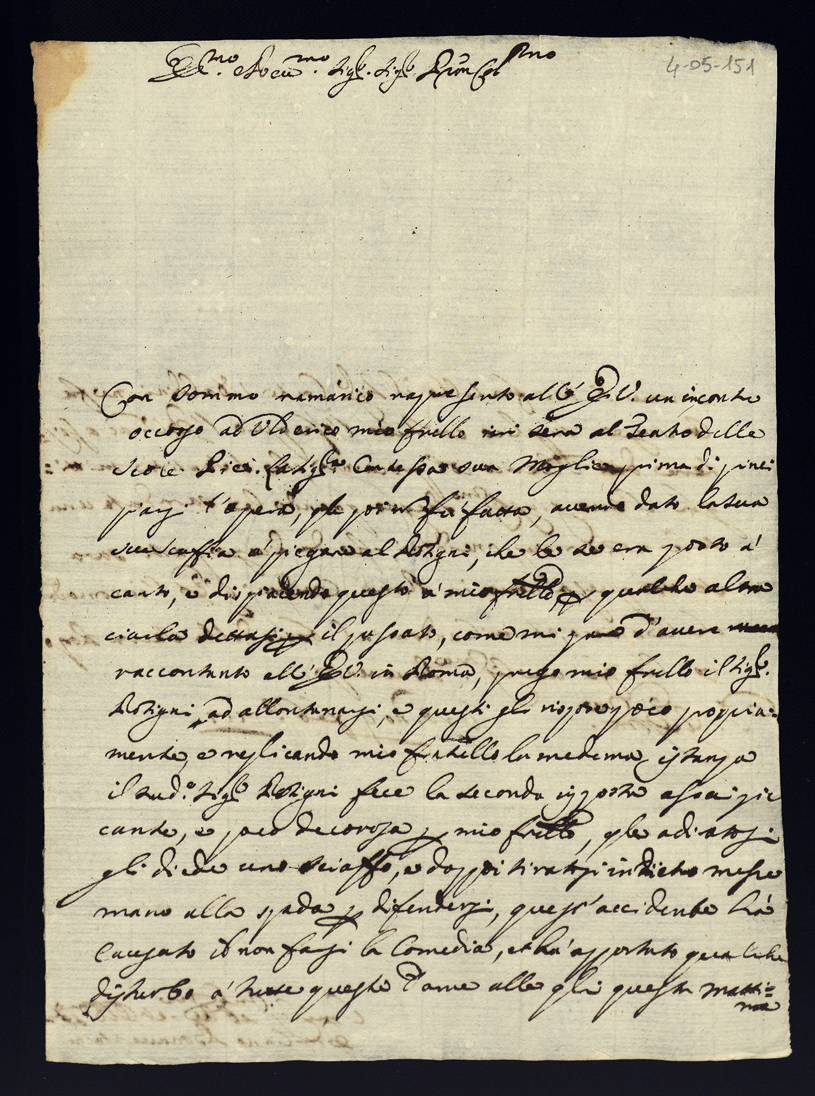 4-05-151
Sig.r Sig.r Pron Col.mo
Con sommo ramarico rappresento all' E. V. un incontro
occorso ad Olderico mio frello ieri sera al Teatro delle
Scole Pie. La Sig.ra Contessa sua Moglie prima di princi
piarsi l'opera, che poi non fù fatta, avendo dato la sua
scuffia a piegare al Rotigni, che le se era posto à
canto, e dispiacendo questo à mio frello p qualche altra
ciarla dettasi p il passato, come mi pare d'avere
raccontato all' E. V. in Roma, prego mio frello il Sig.r
Rotigni ad allontanarsi, e questi gli rispose poco propria:
mente, e replicando mio fratello la medema istanza
il sud.o Sig.r Rotigni fece la seconda risposta assai pic
cante, e poco decorosa p mio frello, che adiratosi
gli diede uno sciaffo, e doppo tiratosi indietro messe
mano alla spada p difendersi, quest'accidente hà
causato il non farsi la Comedia, et hà apportato qualche
disturbo à tutte queste Dame alle qli questa matti=
na